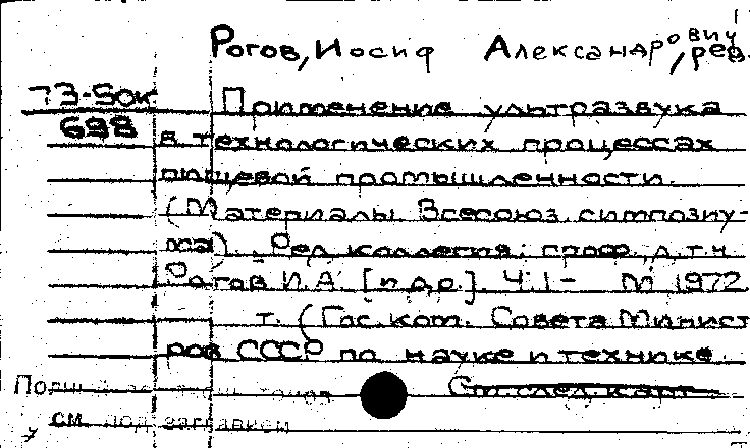 Рогов, Иосиф Александрович, ред.
73-50к Применение ультразвука
698 в технологических процессах
пищевой промышленности.
(Материалы Всесоюз. симпозиу-
ма). Ред. коллегия: проф., д.т.н.
Рогов И.А. [и др.]. Ч.1- М 1972
т. (Гос. ком. Совета Минист
ров СССР по науке и технике.
См. след. карт.
см. под заглавием